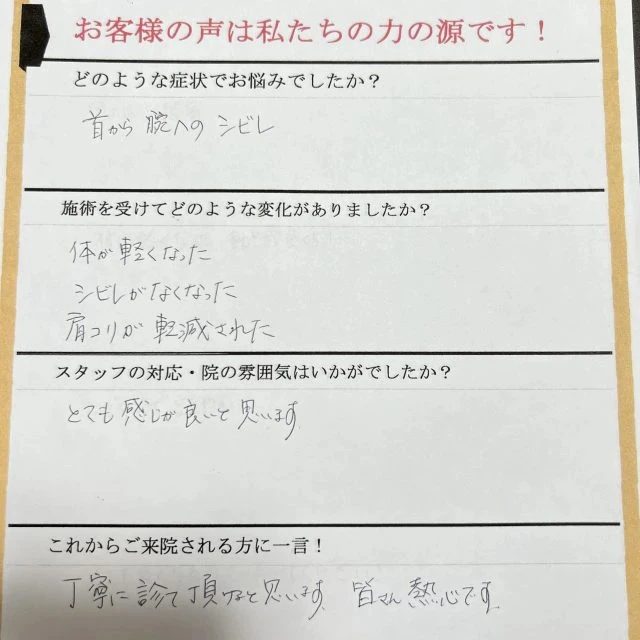 お客様の声は私たちの力の源です！
どのような症状でお悩みでしたか？
首から 腕への シビレ
施術を受けてどのような変化がありましたか？
体が軽くなった
シビレがなくなった
肩コリが 軽減された
スタッフの対応・院の雰囲気はいかがでしたか？
とても 感じが良いと思います
これからご来院される方に一言！
丁寧に診て頂けると思います 皆さん 熱心です